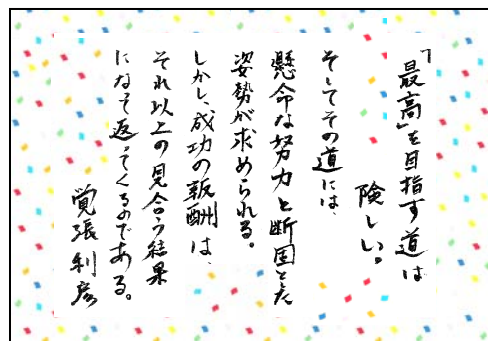 「最高」を目指す道は
険しい。
そしてその道には、
懸命な努力と断固とした
姿勢が求められる。
しかし、成功の報酬は、
それ以上の見合う結果
になって返ってくるのである。
覚張利彦